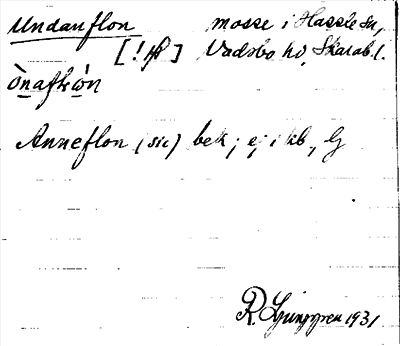 Undanflon mosse i Hassle sn,
[!] Vadsbo hd, Skarab. l.
ònaflὼn
Anneflon (sic) bek; ej i kb, Lj
R. Ljunggren 1931